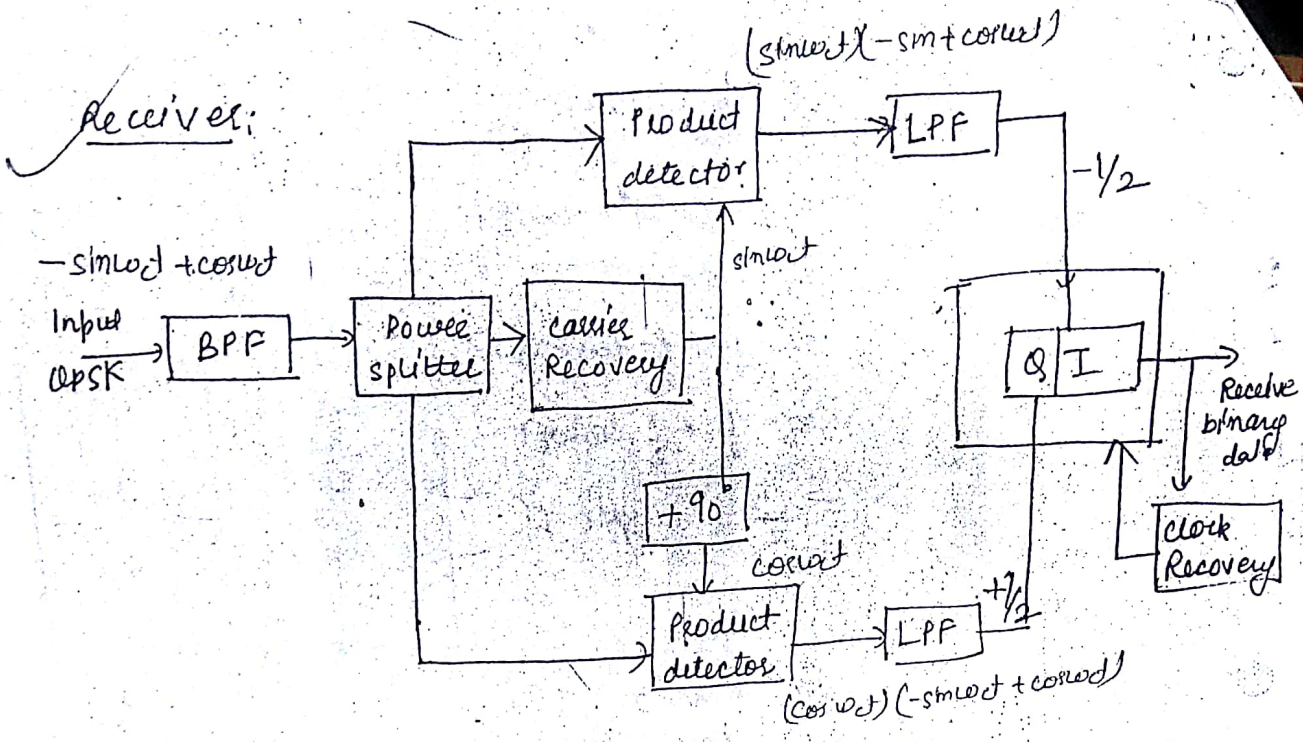 (sinωct)(-sin+cosωct)
Receiver:
Product
detector
LPF
-1/2
-sinωct +cosωct
sinωct
Input
QPSK
BPF
Power
splitter
Carrier
Recovery
Q I
Receive
binary
data
+90°
cosωct
Clock
Recovery
+1/2
Product
detector
LPF
(cosωct)(-sinωct + cosωct)